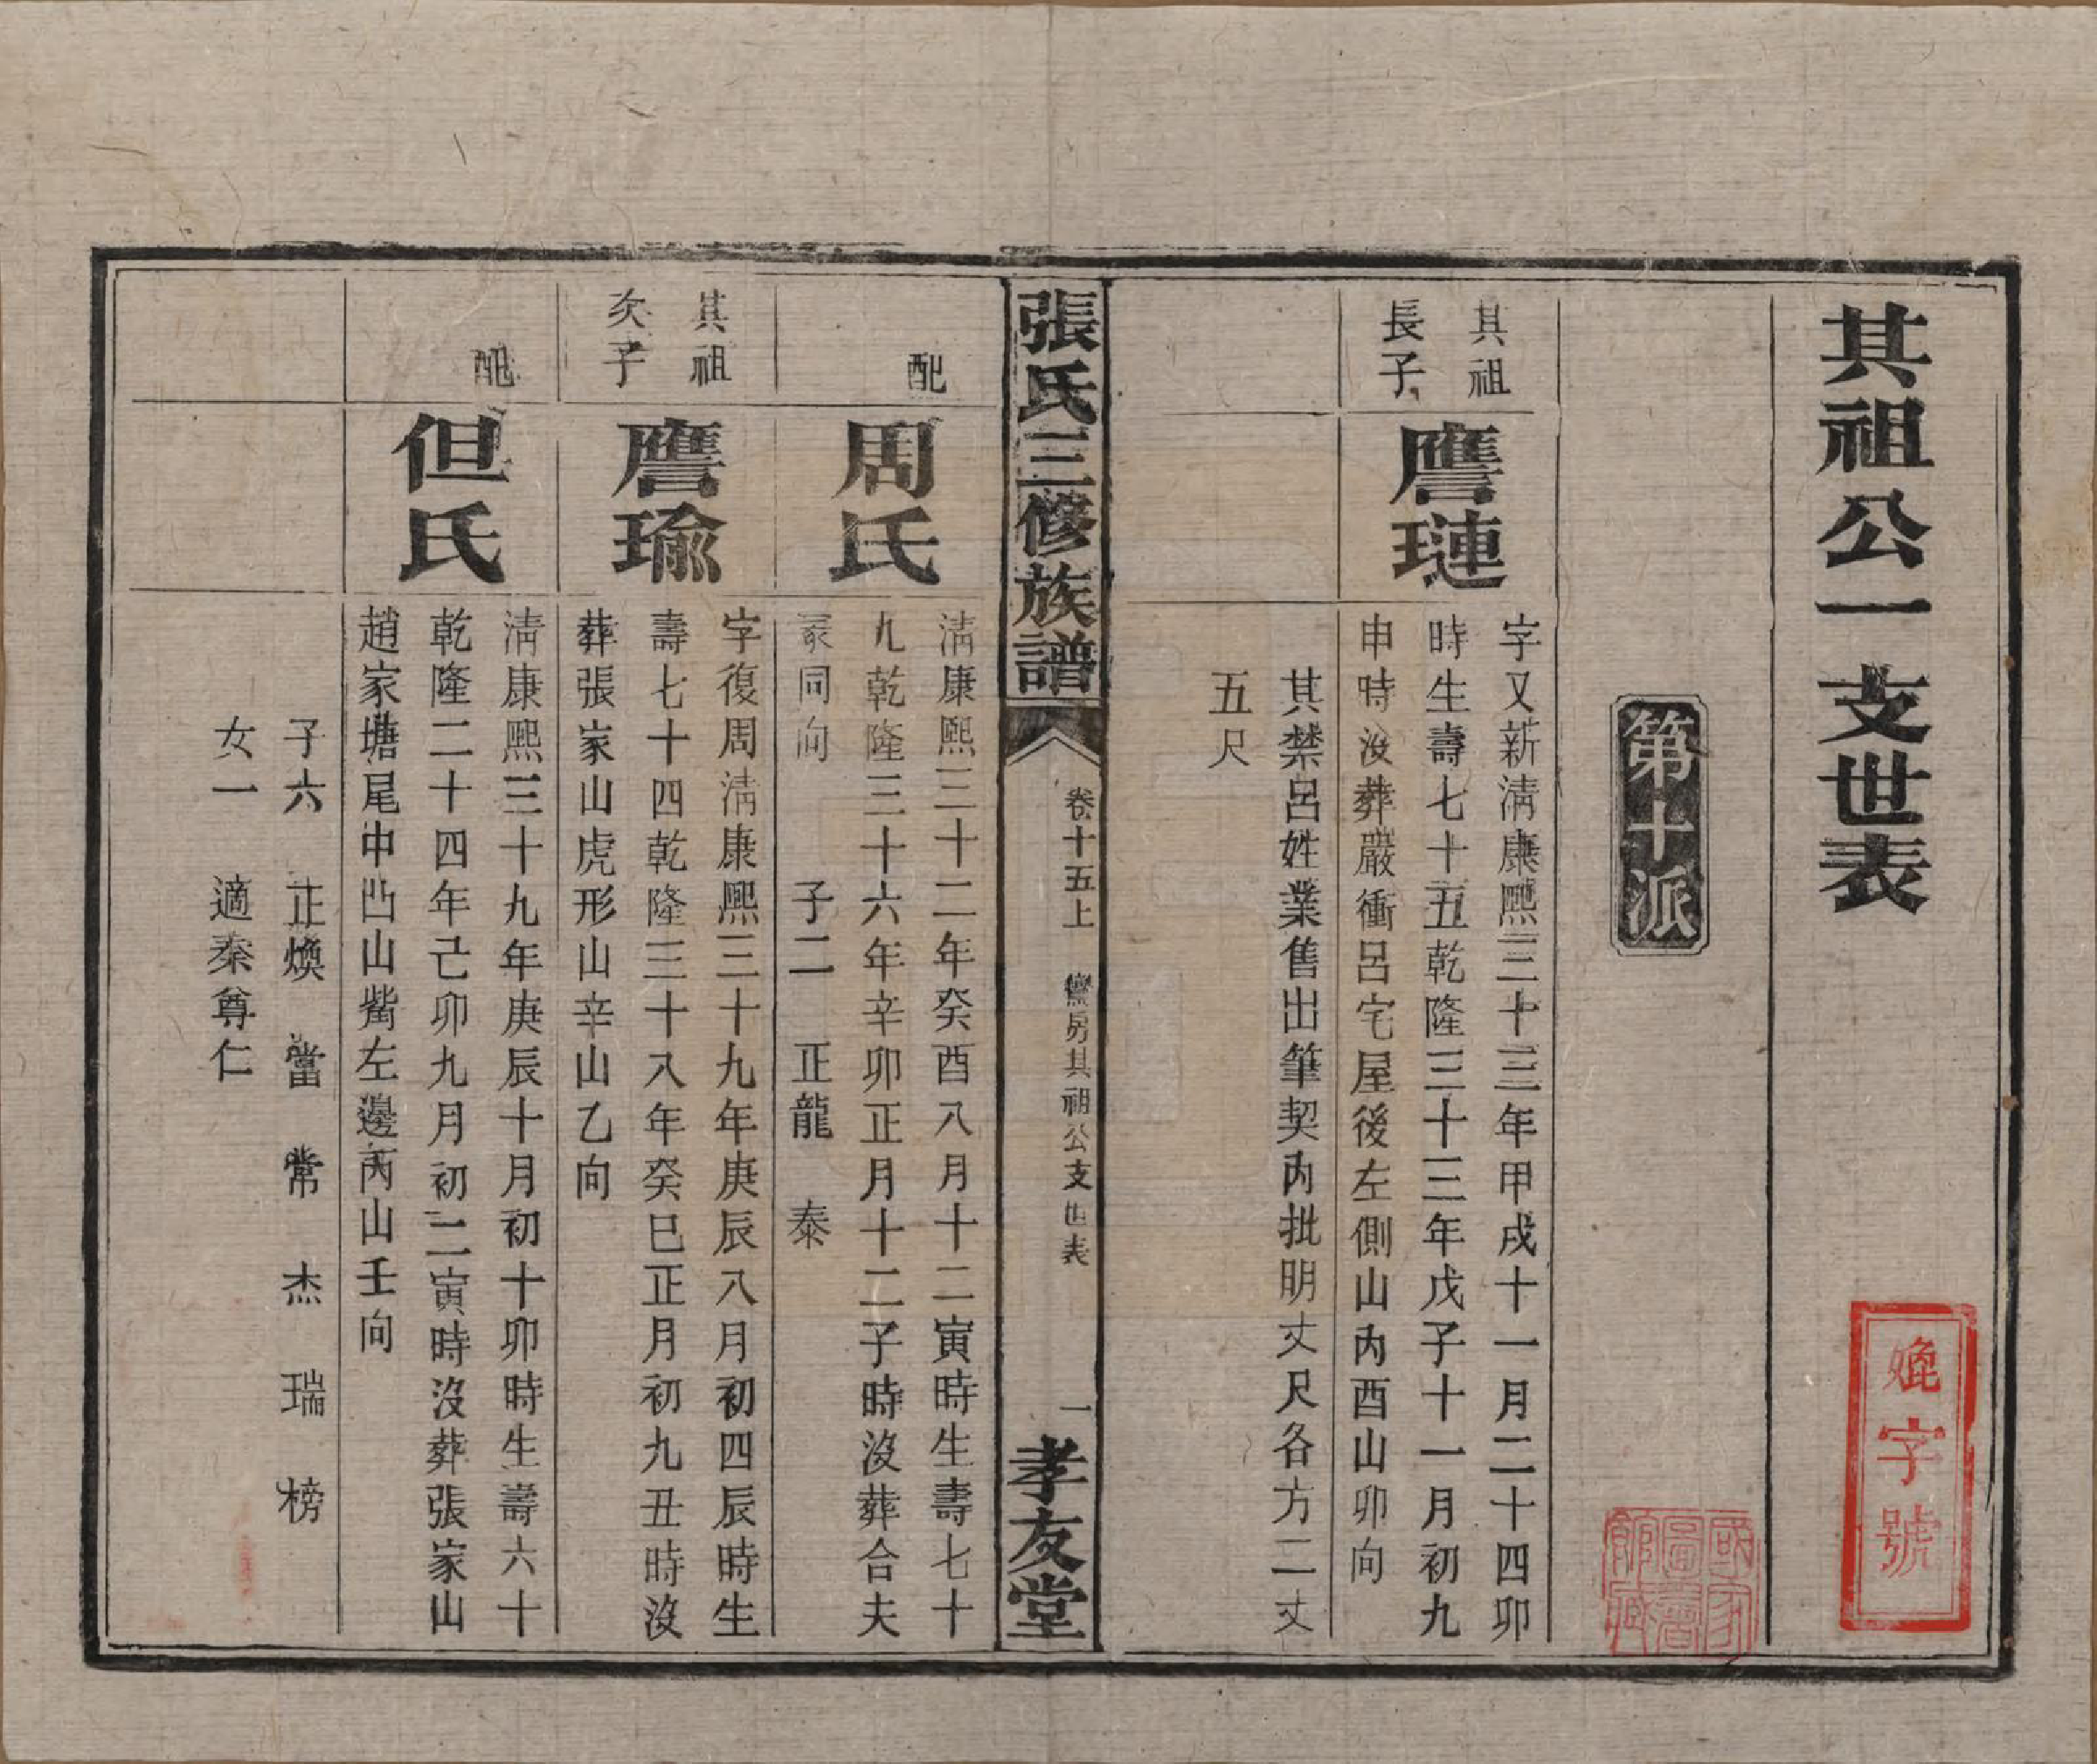 其祖公一支世表
㛯字號
第十派
國家圖書館藏
其祖
長子
譍璉
字又新清康熙三十三年甲戌十一月二十四卯
時生壽七十五乾隆三十三年戊子十一月初九
申時沒葬嚴衝呂宅屋後左側山內酉山卯向
其禁呂姓業售出筆契內批明丈尺各方二丈
五尺
張氏三修族譜
卷十五上
房其祖公支世表
一
孝友堂
配
周氏
清康熙三十二年癸酉八月十二寅時生壽七十
九乾隆三十六年辛卯正月十二子時沒葬合夫
冢同向 子二 正龍 泰
其祖
次子
譍瑜
字復周清康熙三十九年庚辰八月初四辰時生
壽七十四乾隆三十八年癸巳正月初九丑時沒
葬張家山虎形山辛山乙向
配
但氏
清康熙三十九年庚辰十月初十卯時生壽六十
乾隆二十四年己卯九月初二寅時沒葬張家山
趙家塘尾中凸山觜左邊丙山壬向
子六 正煥 當 常 杰 瑞 榜
女一 適秦尊仁